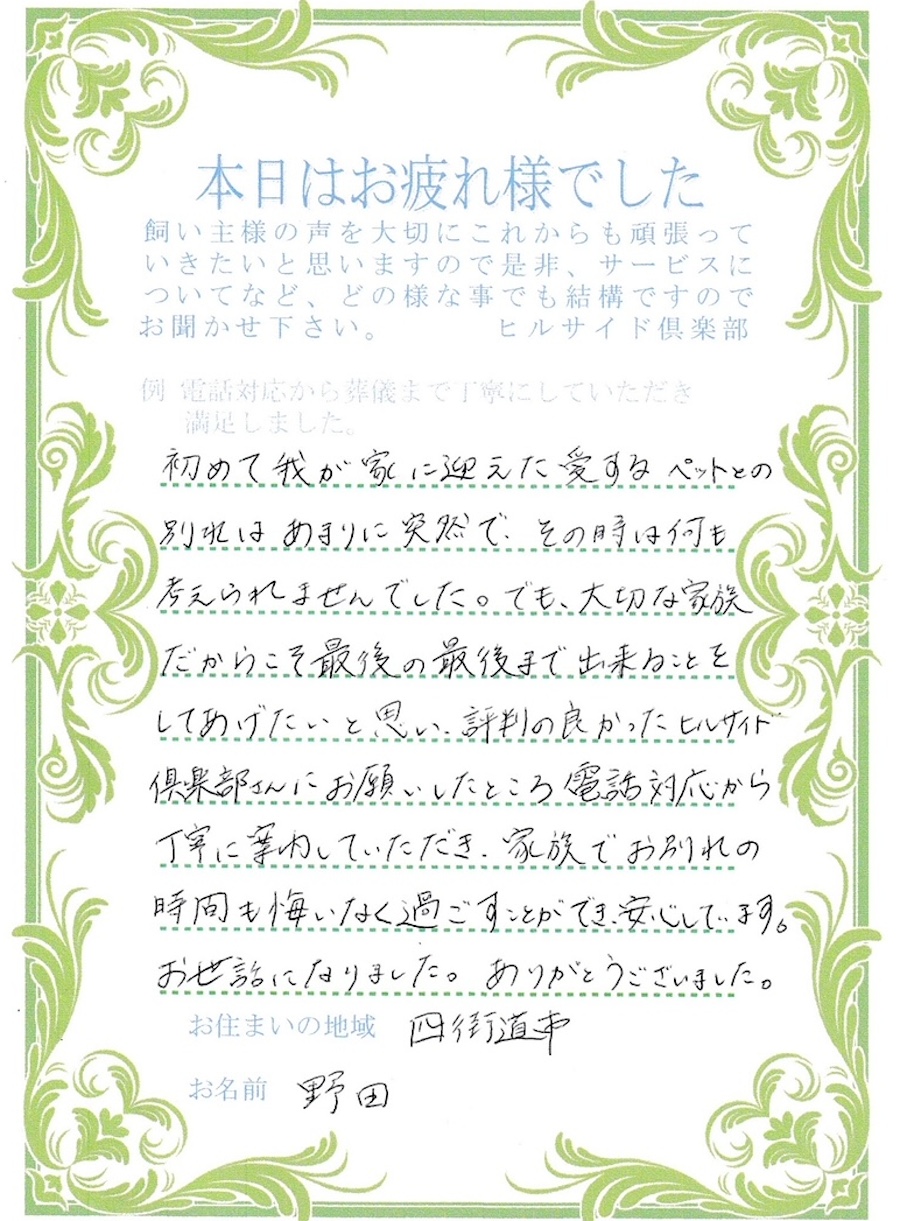 本日はお疲れ様でした
飼い主様の声を大切にこれからも頑張って
いきたいと思いますので是非、サービスに
ついてなど、どの様な事でも結構ですので
お聞かせ下さい。　ヒルサイド倶楽部
例 電話対応から葬儀まで丁寧にしていただき
満足しました。
初めて我が家に迎えた愛するペットとの
別れはあまりに突然で、その時は何も
考えられませんでした。でも、大切な家族
だからこそ最後の最後まで出来ることを
してあげたいと思い、評判の良かったヒルサイド
倶楽部さんにお願いしたところ電話対応から
丁寧に案内していただき、家族でお別れの
時間も悔いなく過ごすことができ、安心しています。
お世話になりました。ありがとうございました。
お住まいの地域 四街道市
お名前 野田